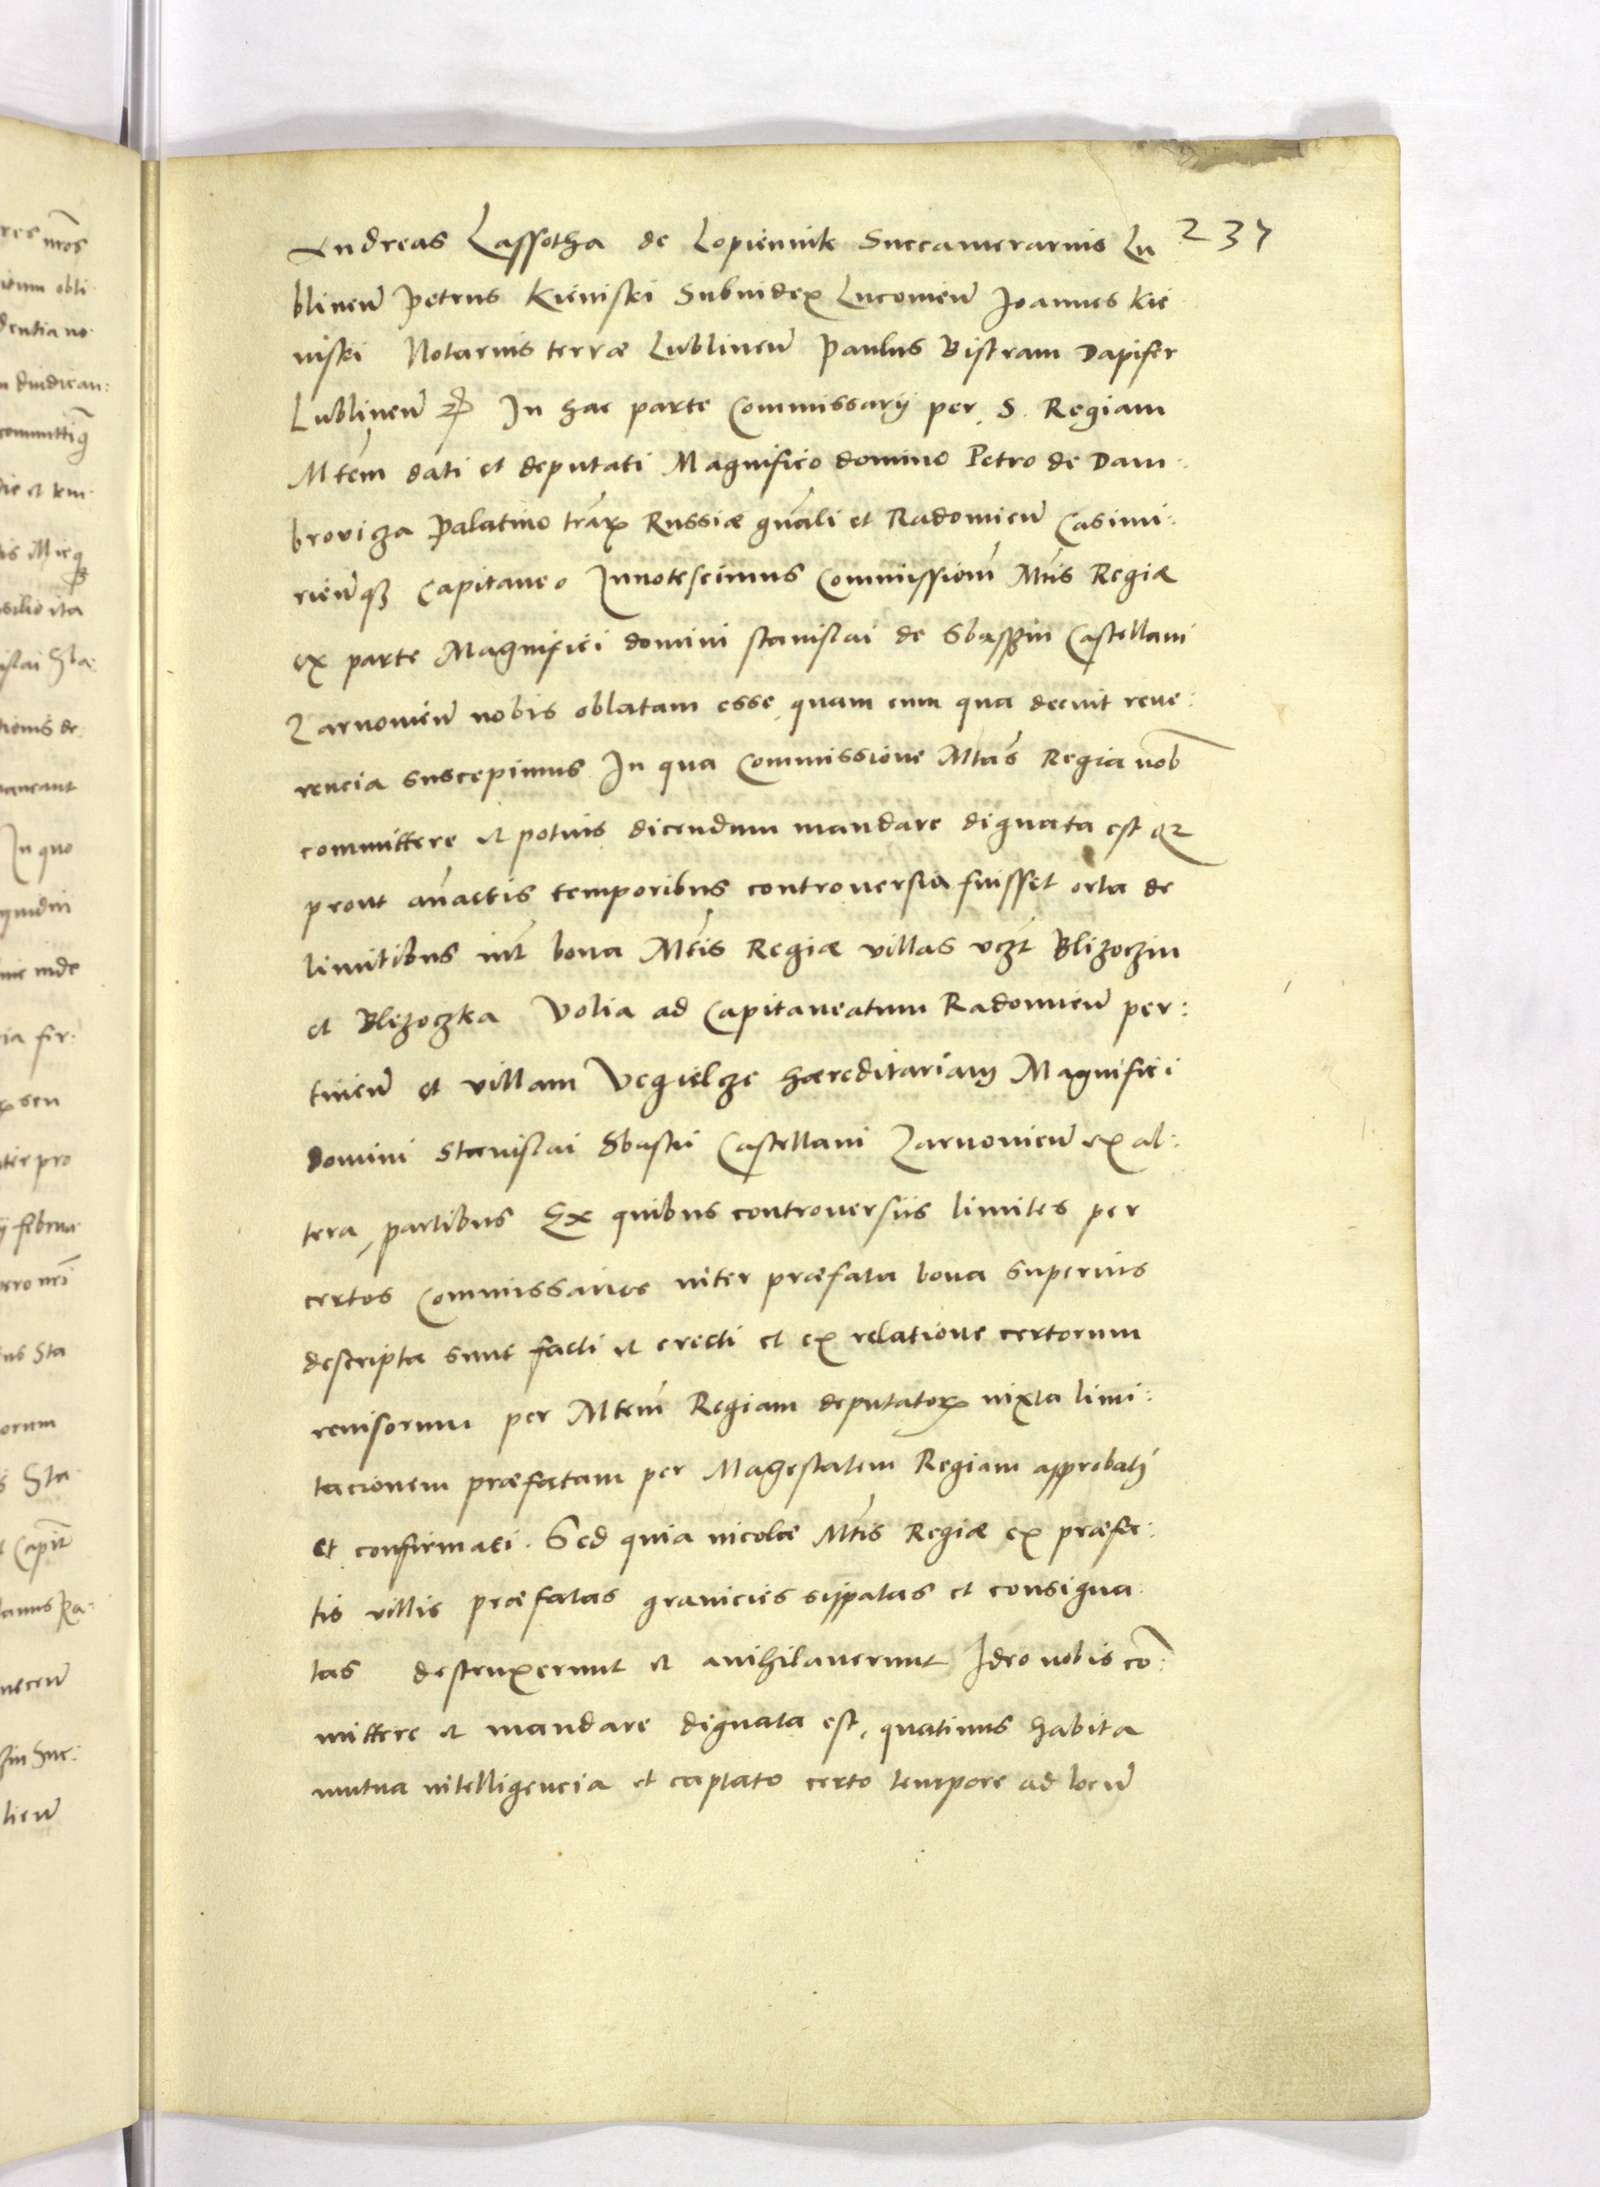 Andreas Lassotha de Lopiennik Succamerarius Lu 237
blineñ Petrus Kieniski Subiudex Lucovieñ Joannes Kie
niski Notarius terræ Lublineñ Paulus Bistram Dapifer
Lublineñ In hac parte Commissarij per S. Regiam
Mtem dati et deputati Magnifico domino Petro de Dam:
brovicza Palatino trarꝝ Russiæ gnali et Radomieñ Casimi:
rieñqꝫ Capitaneo Innotescimus Commissionem Mtis Regiæ
ex parte Magnifici domini Stanislai de Sbasszin Castellani
Zarnovieñ nobis oblatam esse, quam cum qua decuit reve:
rencia suscepimus In qua Commissione Mtas Regia nob
committere et potius dicendum mandare dignata est qꝫ
prout anactis temporibus controversia fuisset orta de
limitibus int bona Mtis Regiæ villas vczt Blizoczin
et Blizoczka Volia ad Capitaneatum Radomieñ per:
tineñ et villam Vegielcze hæreditariam Magnifici
Domini Stanislai Sbaski Castellani Zarnovieñ ex al:
tera partibus Ex quibus controversiis limites per
certos Commissarios inter præfata bona superius
descripta sunt facti et erecti et ex relatione certorum
revisorum per Mtem Regiam deputatorꝝ iuxta limi:
tacionem præfatam per Magestatem Regiam approbati
et confirmati. Sed quia incolæ Mtis Regiæ ex præfa:
tis villis præfatas granicies sippatas et consigna
tas destruxerunt et anihilaverunt Ideo nobis co:
mittere et mandare dignata est, quatinus habita
mutua intelligencia et captato certo tempore ad locũ